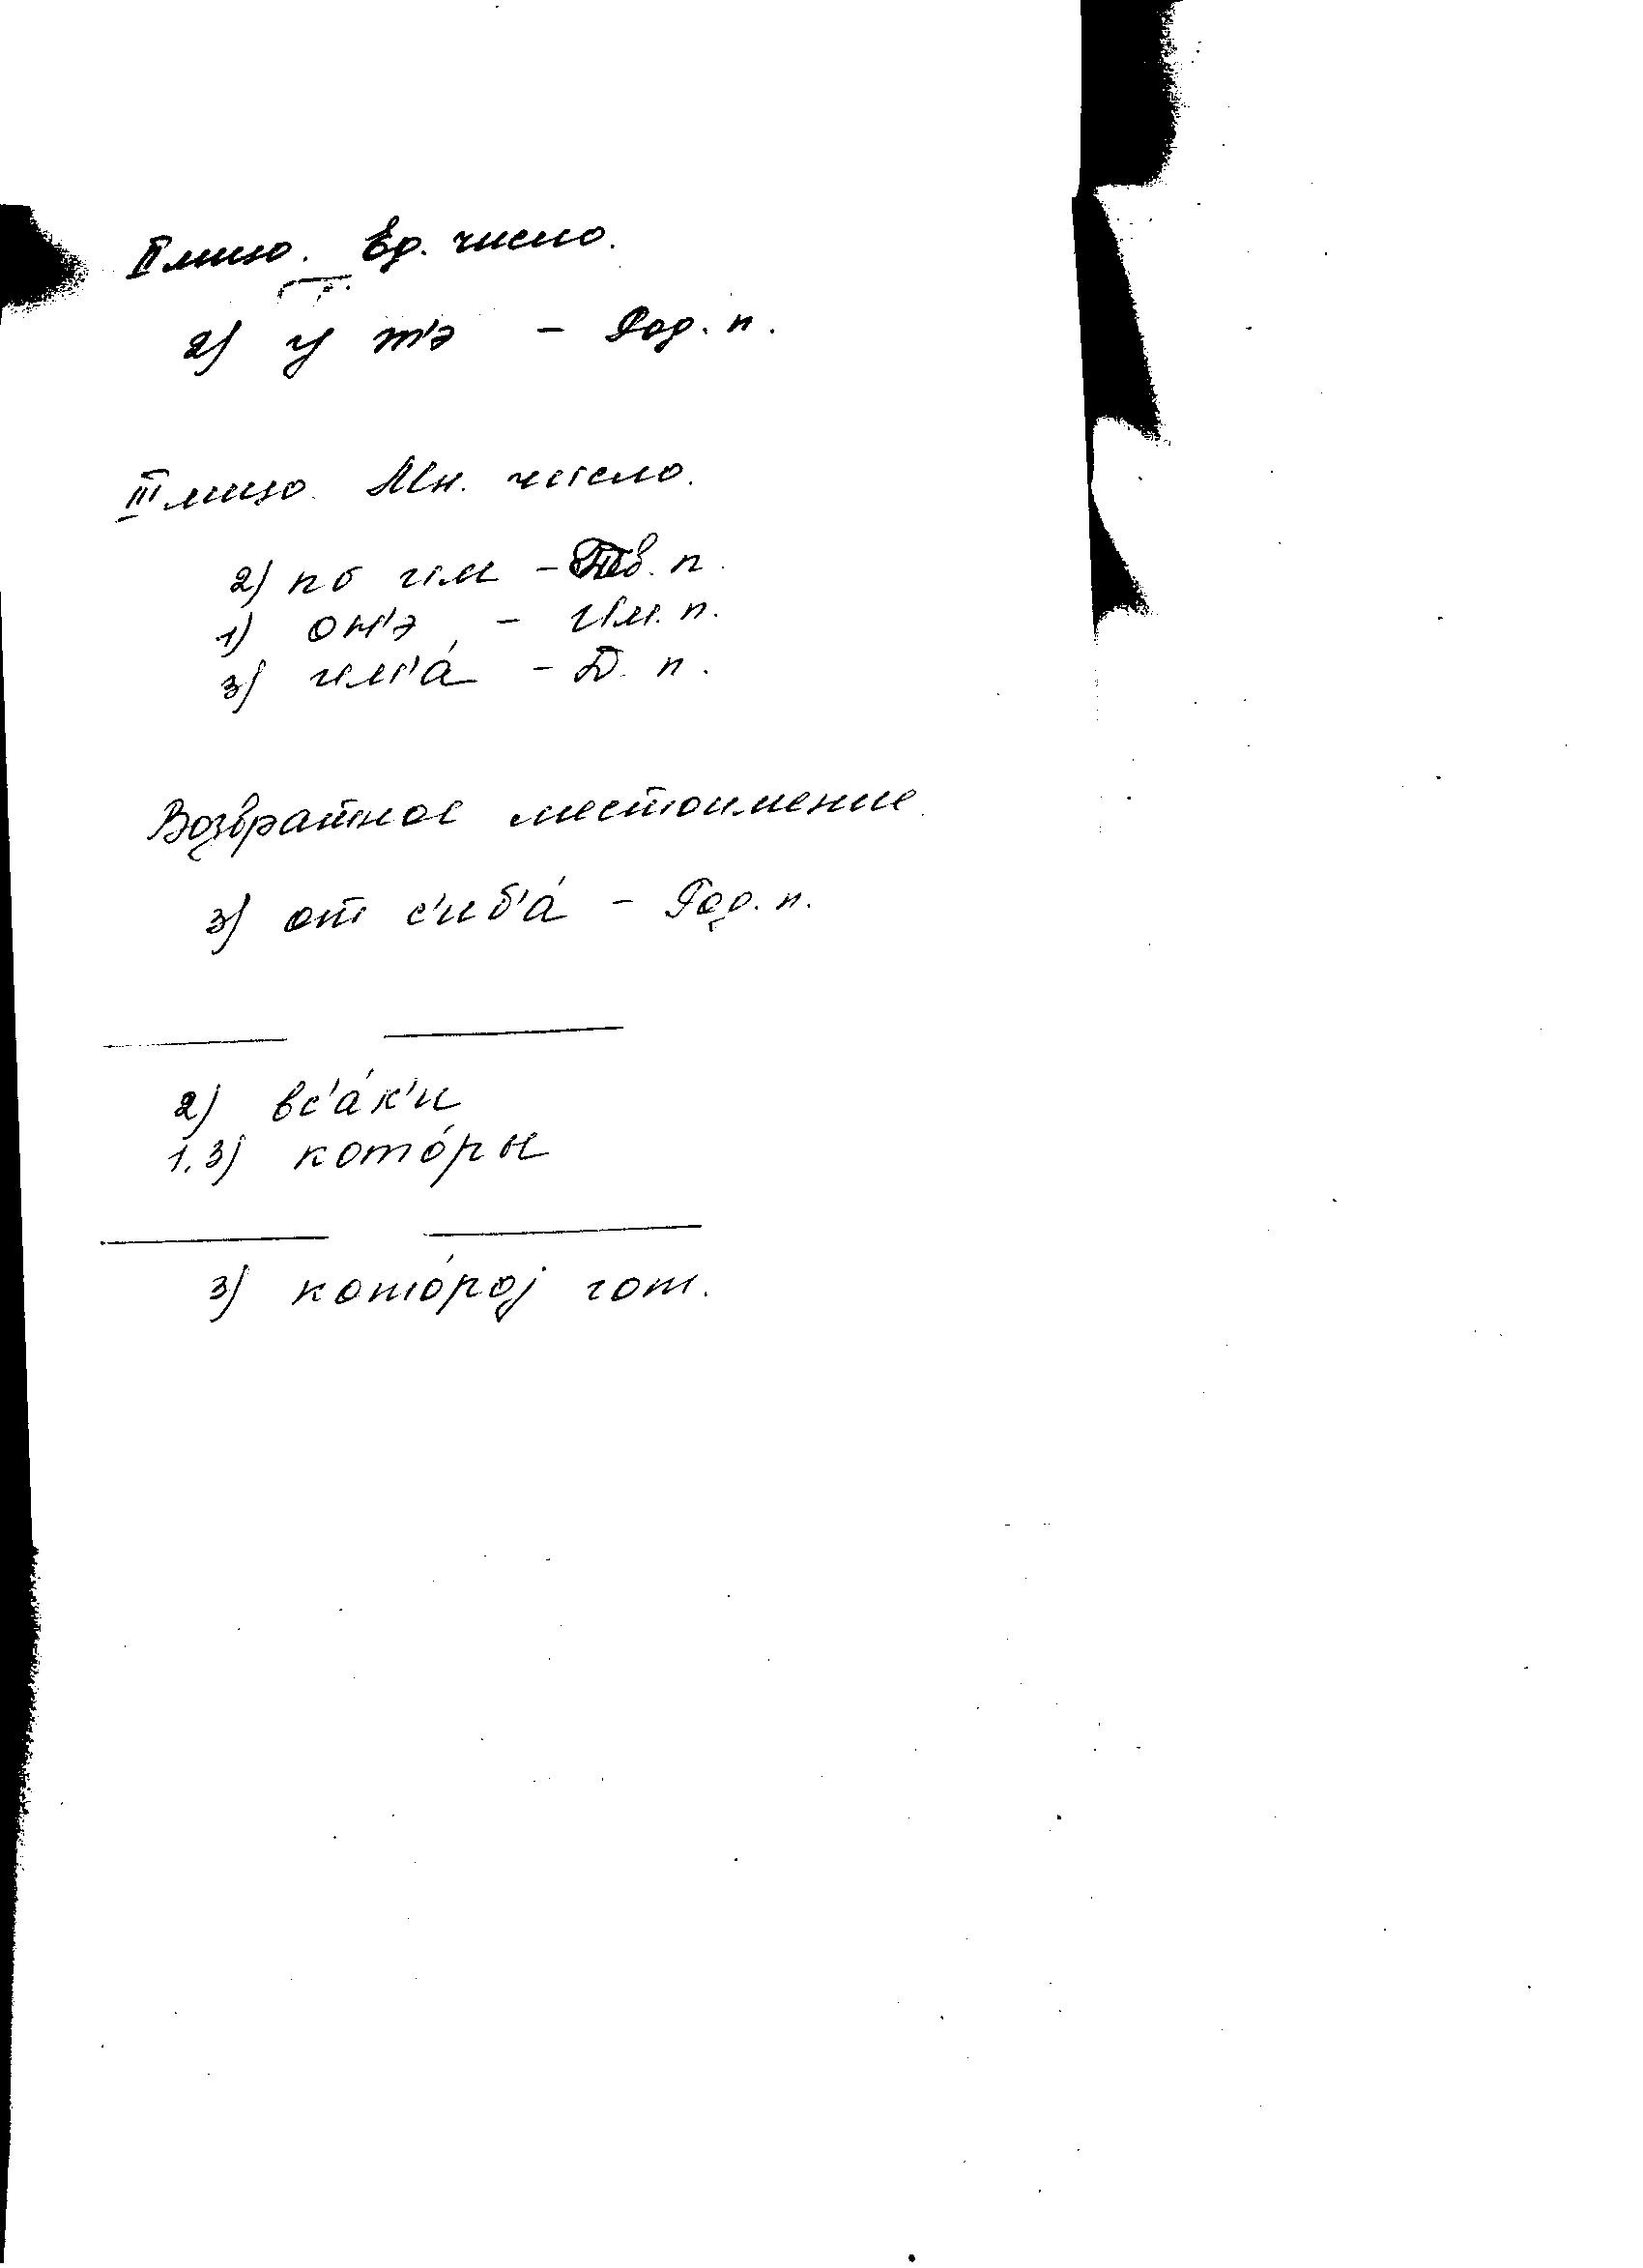 II лицо. Ед. число.
2) у т'э – Род. п.
III лицо. Мн. число.
2) по им – Тв. п.
1) он'э – Им. п.
3) им'а́ – Д. п.
Возвратное местоимение.
3) от с'иб'а́ – Род. п.
2) вс'а́к'и
1.3) кото́ры
3) кото́рој гот.